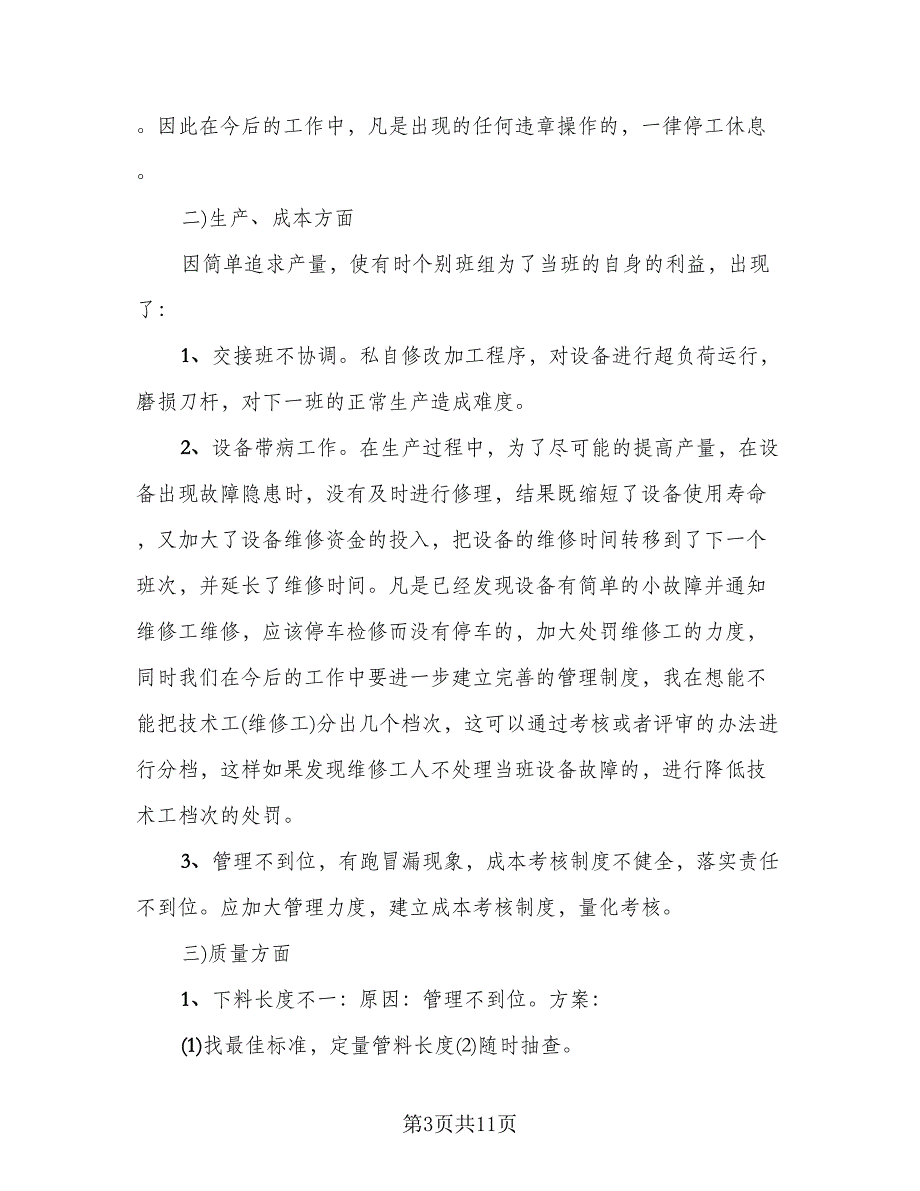 。因此在今后的工作中，凡是出现的任何违章操作的，一律停工休息
。
二)生产、成本方面
因简单追求产量，使有时个别班组为了当班的自身的利益，出现
了：
1、交接班不协调。私自修改加工程序，对设备进行超负荷运行，
磨损刀杆，对下一班的正常生产造成难度。
2、设备带病工作。在生产过程中，为了尽可能的提高产量，在设
备出现故障隐患时，没有及时进行修理，结果既缩短了设备使用寿命
，又加大了设备维修资金的投入，把设备的维修时间转移到了下一个
班次，并延长了维修时间。凡是已经发现设备有简单的小故障并通知
维修工维修，应该停车检修而没有停车的，加大处罚维修工的力度，
同时我们在今后的工作中要进一步建立完善的管理制度，我在想能不
能把技术工(维修工)分出几个档次，这可以通过考核或者评审的办法进
行分档，这样如果发现维修工人不处理当班设备故障的，进行降低技
术工档次的处罚。
3、管理不到位，有跑冒漏现象，成本考核制度不健全，落实责任
不到位。应加大管理力度，建立成本考核制度，量化考核。
三)质量方面
1、下料长度不一：原因：管理不到位。方案：
(1)找最佳标准，定量管料长度(2)随时抽查。
第3页共11页